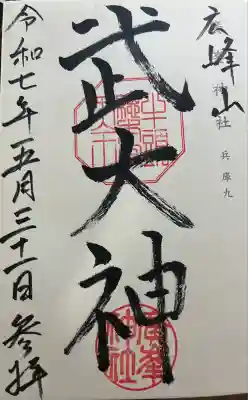 広峰山
神社 兵庫九
武大神
廣峯神社
令和七年五月三十一日参拝